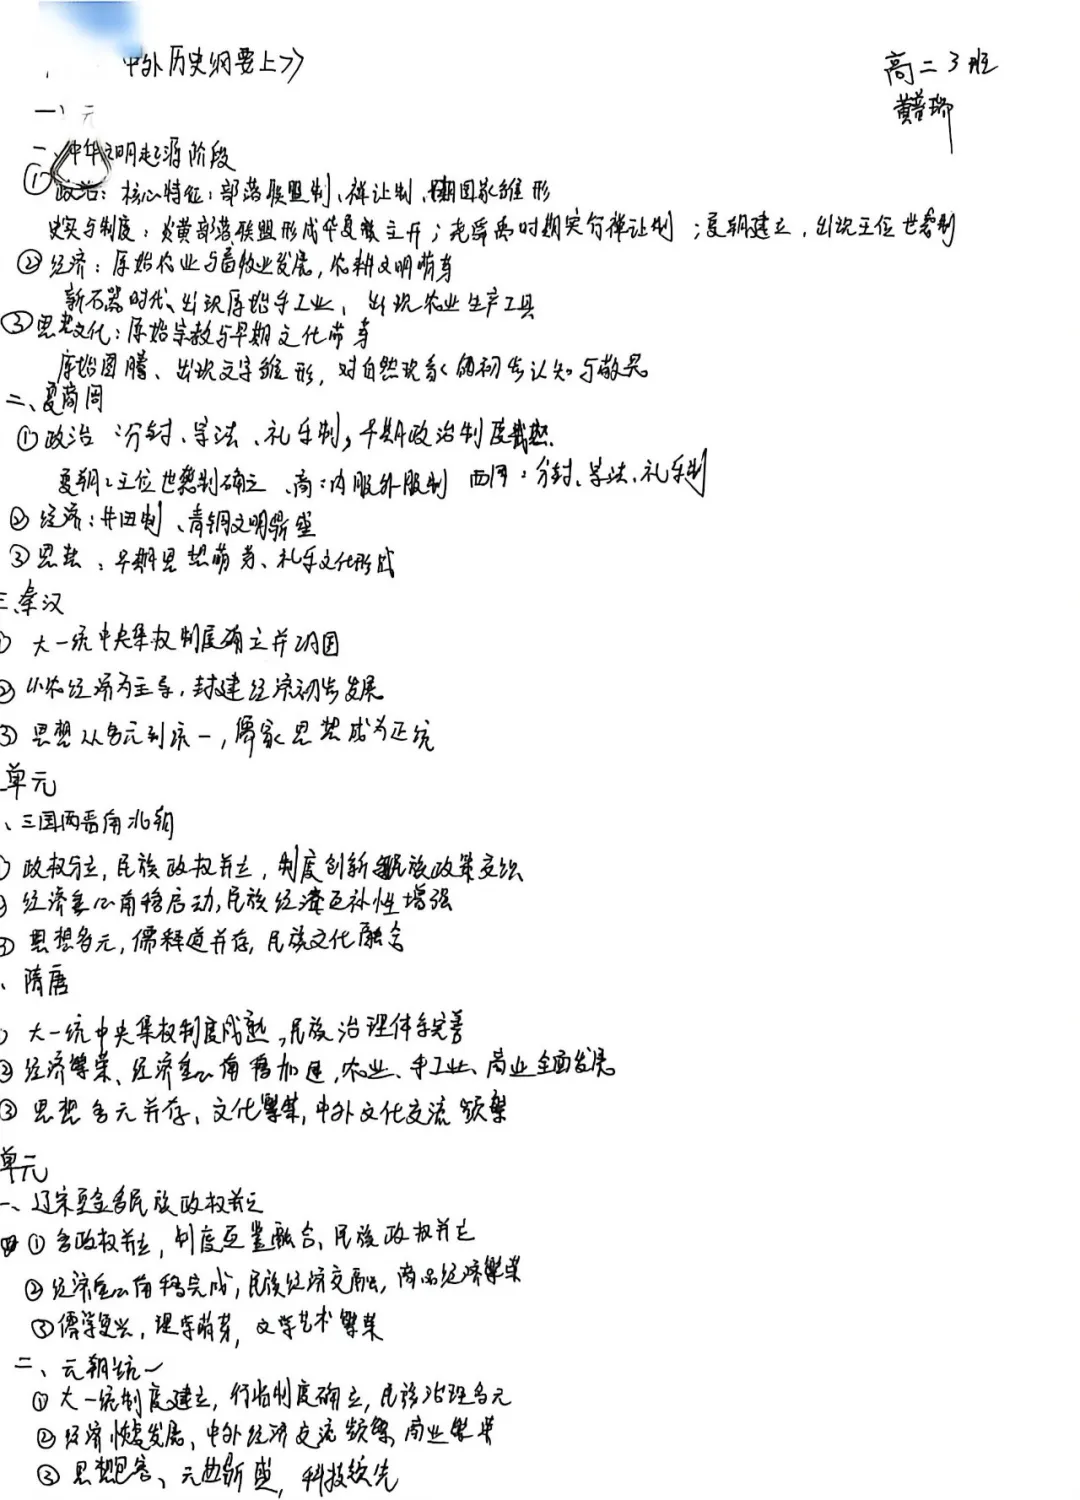 中外历史纲要上》
高二3班
一、元
一、中华文明起源阶段
①政治：核心特征：部落联盟制、禅让制、国家雏形
史实与制度：炎黄部落联盟形成华夏族主干；尧舜禹时期实行禅让制；夏朝建立，出现王位世袭制
②经济：原始农业与畜牧业发展，农耕文明萌芽
新石器时代、出现原始手工业、出现农业生产工具
③思想文化：原始宗教与早期文化萌芽
原始图腾、出现文字雏形，对自然现象的初步认知与敬畏
二、夏商周
①政治：分封、宗法、礼乐制，早期政治制度
夏朝：王位世袭制确立、商：内服外服制 西周：分封、宗法、礼乐制
②经济：井田制、青铜文明鼎盛
③思想：早期思想萌芽、礼乐文化形成
三、秦汉
① 大一统中央集权制度确立并巩固
② 小农经济为主导，封建经济初步发展
③ 思想从多元到统一，儒家思想成为正统
单元
、三国两晋南北朝
① 政权分立，民族政权并立，制度创新民族政策交织
② 经济重心南移启动，民族经济互补性增强
③ 思想多元，儒释道并存，民族文化融合
、隋唐
① 大一统中央集权制度成熟，民族治理体系完善
② 经济繁荣、经济重心南移加速，农业、手工业、商业全面发展
③ 思想多元并存、文化繁荣，中外文化交流频繁
单元
一、辽宋夏金多民族政权并立
①多政权并立，制度互鉴融合、民族政权并立
②经济重心南移完成，民族经济交融，商品经济繁荣
③儒学复兴，理学萌芽，文学艺术繁荣
二、元朝统一
①大一统制度建立，行省制度确立，民族治理多元
②经济恢复发展、中外经济交流频繁、商业繁荣
③思想包容、元曲鼎盛，科技领先